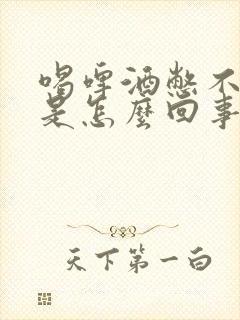 喝啤酒憋不
是怎麼回事
天下第一白